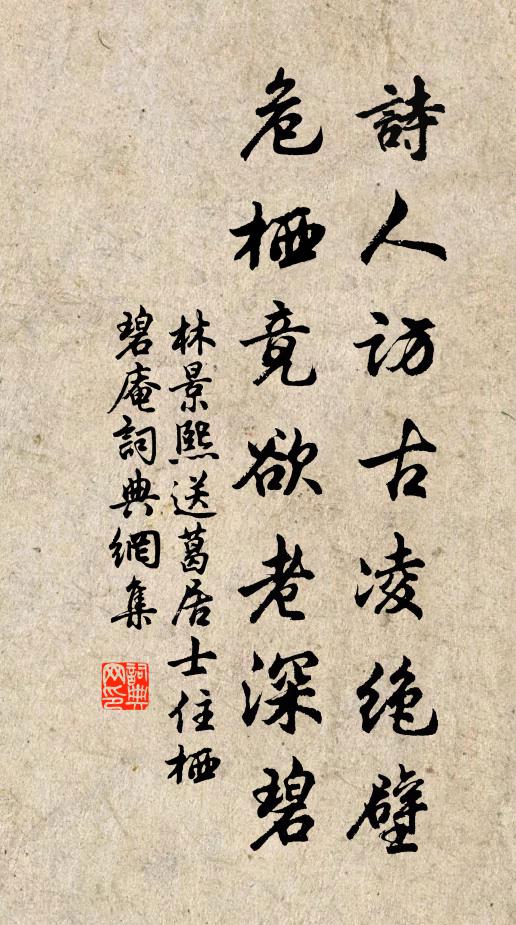 詩人訪古凌绝壁
危栖竟欲老深碧
林景熙送葛居士住栖
碧庵詞典網集
詞典网印